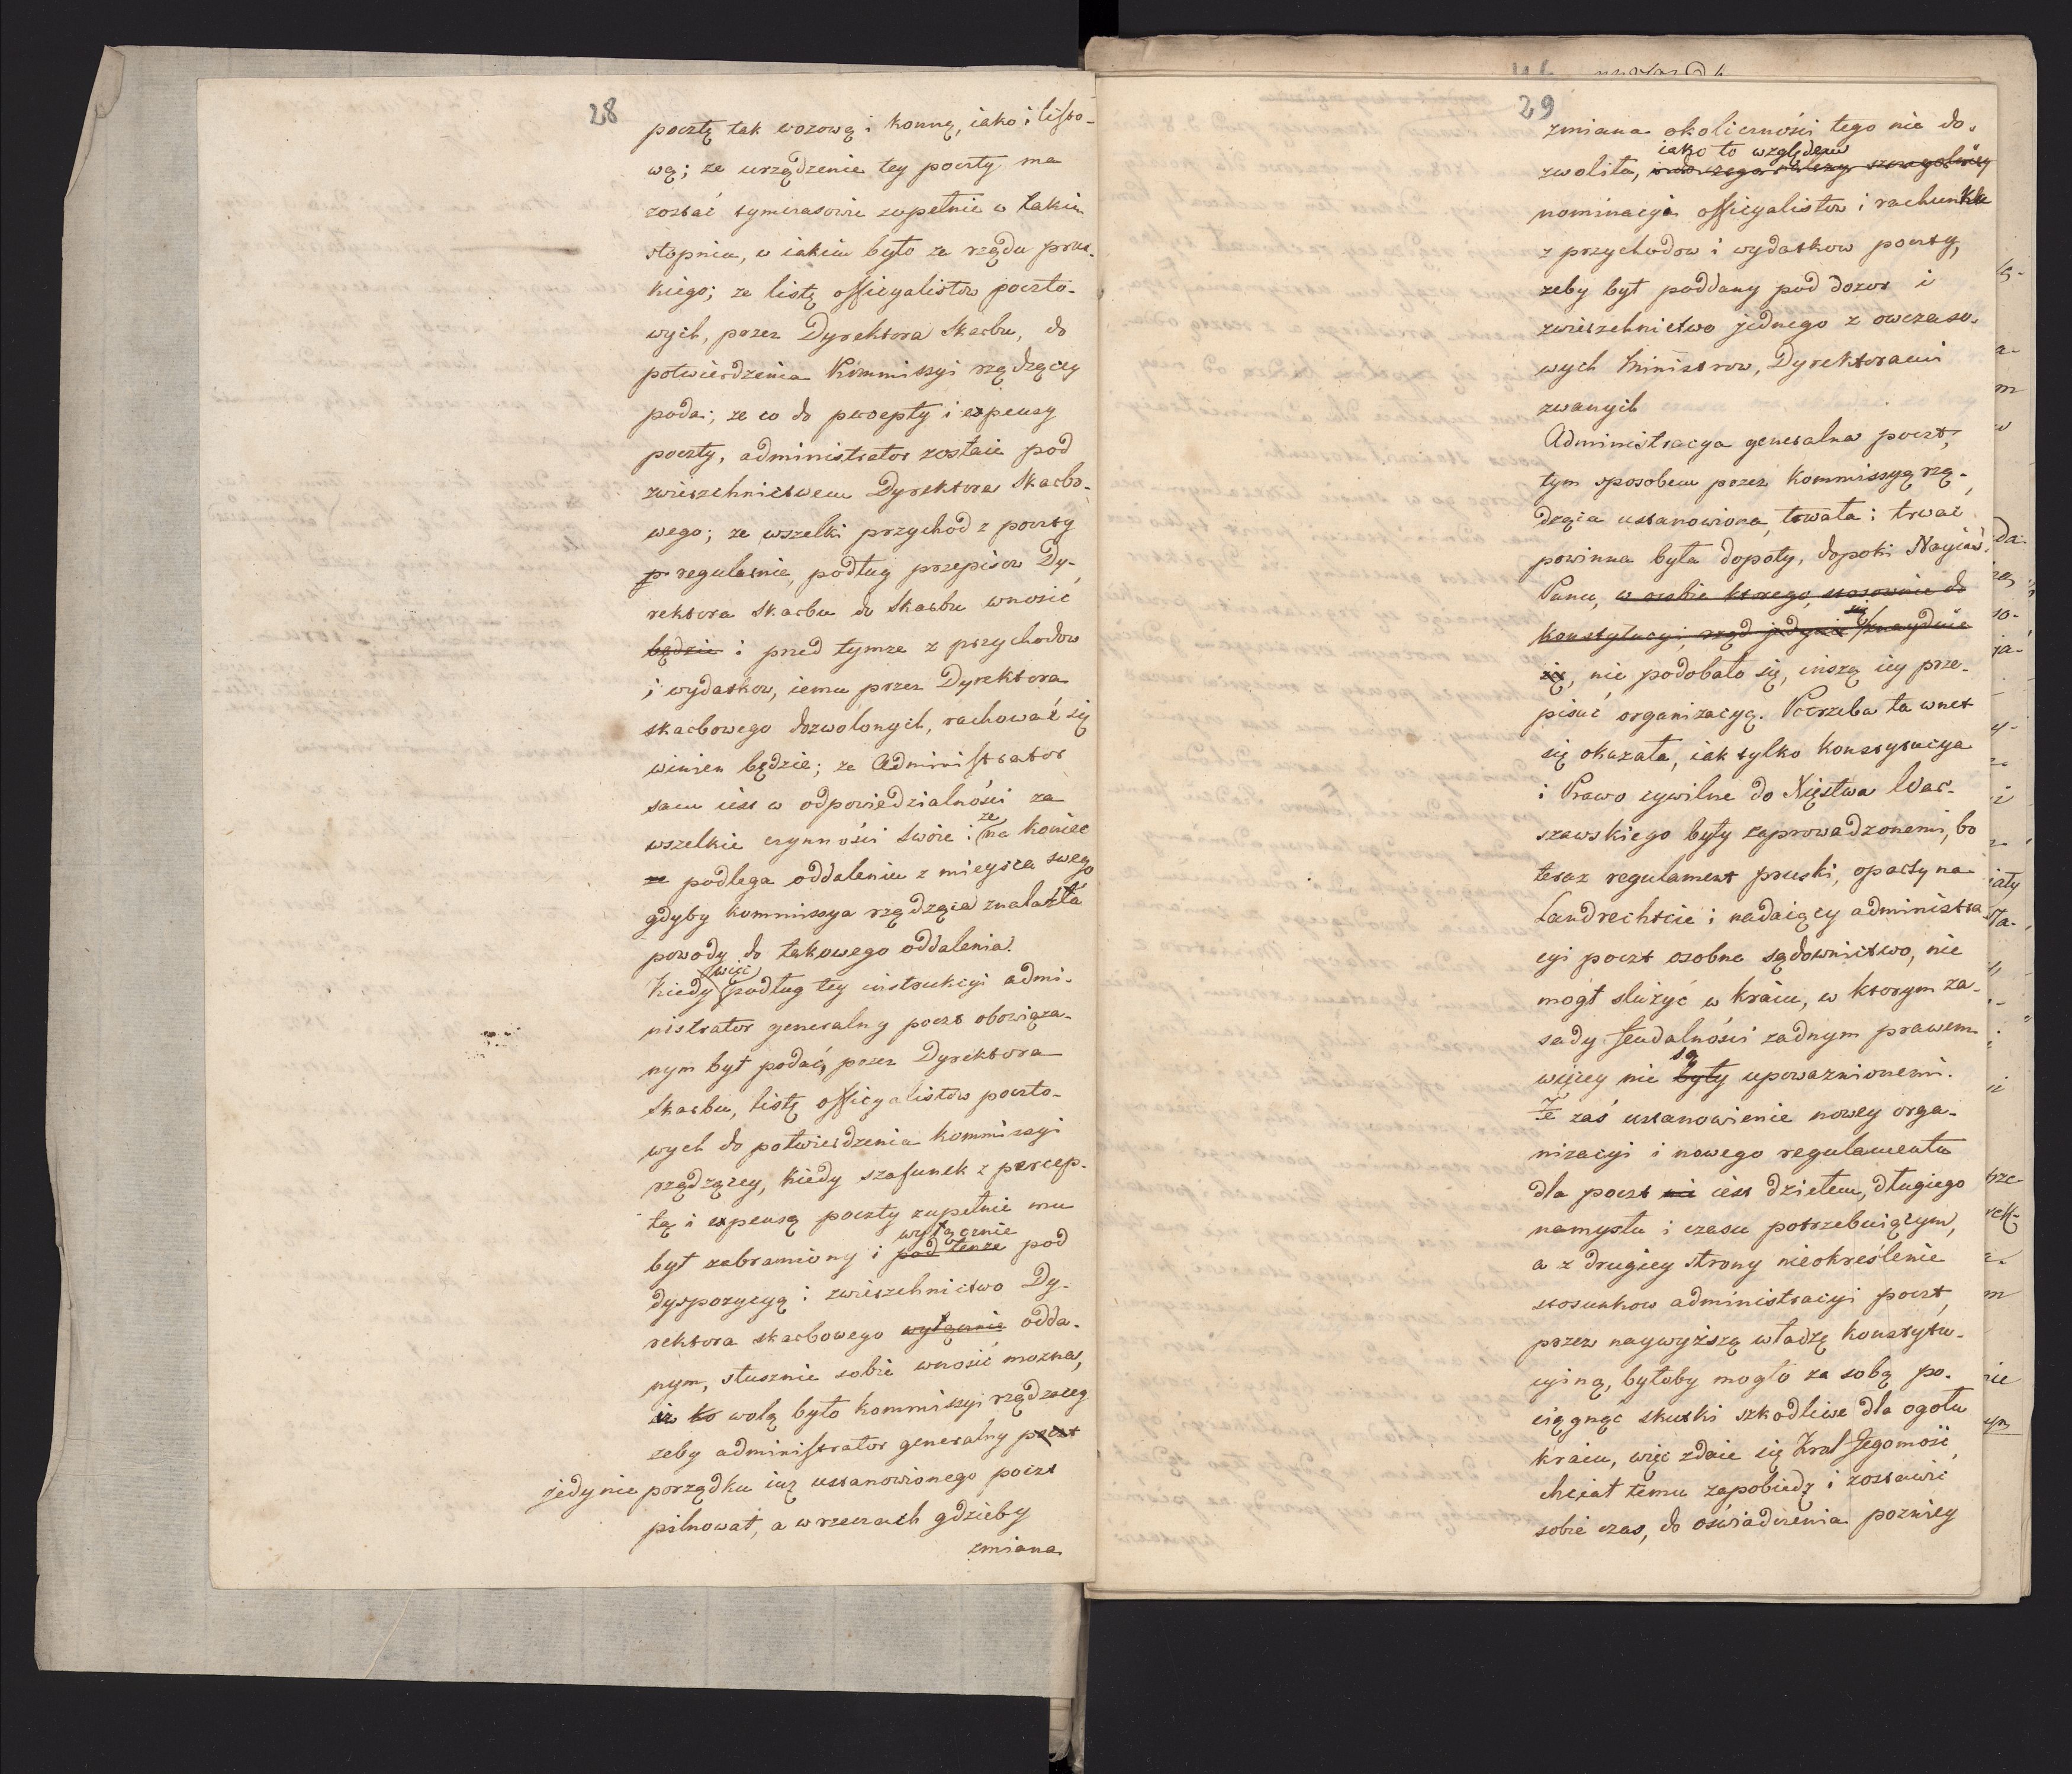 28
pocztę tak wozową i konną, iako i listo-
wą; ze urządzenie tey poczty ma
zostać tymczasowie zupełnie w takim
stopniu, w iakim było za rządu prus-
kiego; ze listę officyalistów poczto-
wych, przez Dyrektora Skarbu, do
potwierdzenia Kommissyi rządzącey
poda; ze co do percepty i expensy
poczty, administrator zostaie pod
zwierzchnictwem Dyrektora Skarbo-
wego; ze wszelki przychod z poczty
regularnie, podług przepisow Dy-
rektora skarbu do Skarbu wnosić
będzie i pned tymze z przychodow
i wydatkow, iemu przez Dyrektora
skarbowego dozwolonych, rachować się
winien będzie; ze Administrator
sam iest w odpowiedzialności za
wszelkie czynności swoie i ze na koniec
podlega oddaleniu z mieysca swego
gdyby kommissya rządząca znalazła
powody do takowego oddalenia.
Kiedy więc podług tey instrukcyi admi-
nistrator generalny poczt obowiąza-
nym był podać, przez Dyrektora
Skarbu, listę officyalistów poczto-
wych do potwierdzenia kommissyi
rządzącey, kiedy szafunek z percep-
tą i expensą poczty zupełnie mu
był zabroniony i wyłącznie pod tenze pod
dyspozycyą i zwierzchnictwo Dy-
rektora skarbowego wyłącznie odda-
nym, słusznie sobie wnosić mozna,
iz to wolą było kommissyi rządzącey
zeby administrator generalny poczt
jedynie porządku iuz ustanowionego poczt
pilnował, a w rzeczach gdzieby
zmiana
29
zmiana okoliczności tego nie do-
iako to względem
zwoliła,
nominacyi officyalistow i rachunku
z przychodow i wydatkow poczty,
zeby był poddany pod dozor i
zwierzchnictwo jednego z owczaso-
wych Ministrow, Dyrektorami
zwanych
Administracya generalna poczt,
tym sposobem przez kommissyą rzą-
dzącą ustanowiona, trwała i trwać
powinna była dopoty, dopoki Nayiaś.
Panu, w osobie ktorego, stosownie do
konstytucyi, rząd jedynie się znayduie
się, nie podobało się, inszą iey prze-
pisać organizacyą. Potrzeba ta wnet
się okazała, iak tylko konstytucya
i Prawo cywilne do Xięstwa War-
szawskiego były zaprowadzonemi, bo
teraz regulament pruski, oparty na
Landrechcie i nadaiący administra-
cyi poczt osobne sądownictwo, nie
mogł służyć w kraiu, w ktorym za-
sady feudalności zadnym prawem
więcey nie były są upowaznionemi.
Ze zaś ustanowienie nowey orga-
nizacyi i nowego regulamentu
dla poczt iest dziełem, długiego
namysłu i czasu potrzebuiącym,
a z drugiey strony nieokreślenie
stosunkow administracyi poczt,
przez naywyższą władzę konstytu-
cyiną, byłoby mogło za sobą po-
ciągnąć skutki szkodliwe dla ogołu
kraiu, więc zdaie się Krol Jegomość
chciał temu zapobiedz i zostawić
sobie czas, do oświadczenia poźniey